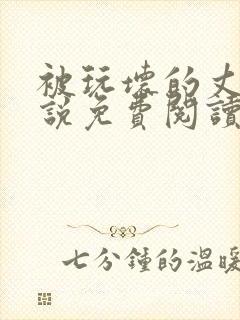 被玩壞的丈
說免費閱讀
七分鐘的溫暖